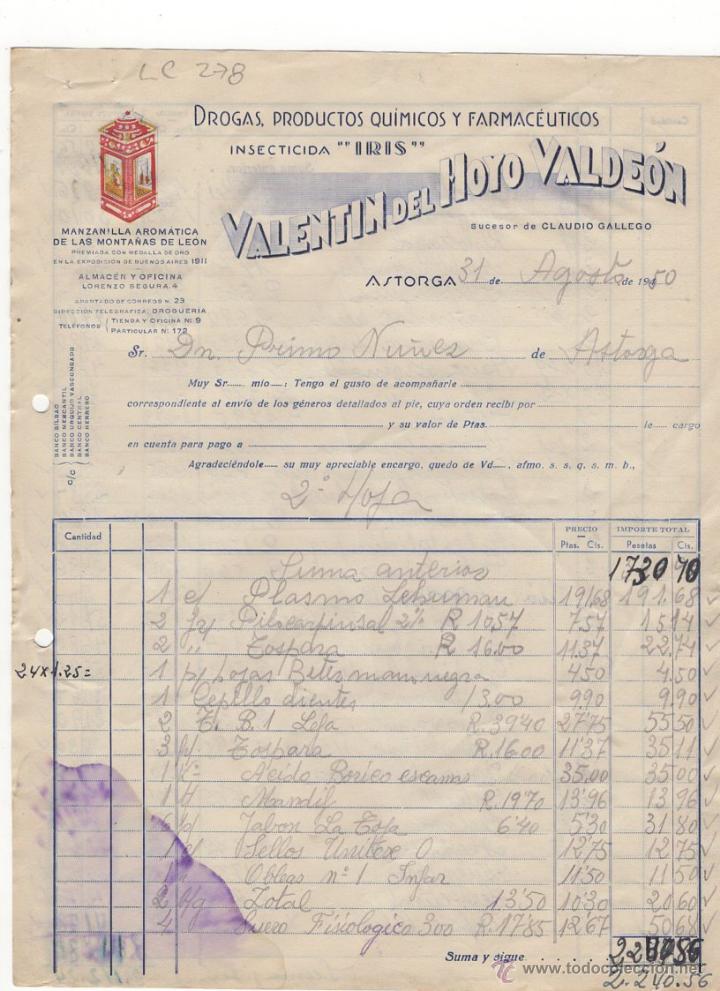 LC 278
DROGAS, PRODUCTOS QUÍMICOS Y FARMACÉUTICOS
INSECTICIDA "IRIS"
VALENTIN DEL HOYO VALDEÓN
Sucesor de CLAUDIO GALLEGO
MANZANILLA AROMÁTICA
DE LAS MONTAÑAS DE LEÓN
PREMIADA CON MEDALLA DE ORO
EN LA EXPOSICIÓN DE BUENOS AIRES 1911
ALMACÉN Y OFICINA
LORENZO SEGURA, 4
APARTADO DE CORREOS N. 23
DIRECCIÓN TELEGRÁFICA, DROGUERÍA
TELÉFONOS TIENDA Y OFICINA Nº 9
PARTICULAR Nº 172
ASTORGA 31 de Agosto de 1950
Sr. Dn. Primo Nuñez de Astorga
c/c
BANCO BILBAO
BANCO MERCANTIL
BANCO URQUIJO VASCONGADO
BANCO CENTRAL
BANCO HERRERO
Muy Sr. mío: Tengo el gusto de acompañarle
correspondiente al envío de los géneros detallados al pie, cuya orden recibí por
y su valor de Ptas. le cargo
en cuenta para pago a
Agradeciéndole su muy apreciable encargo, quedo de Vd., afmo. s. s. q. s. m. b.,
2ª Hoja
Cantidad PRECIO IMPORTE TOTAL
Ptas. Cts. Pesetas Cts.
Suma anterior 1730 70
1 c/ Plasmo 191,68 191,68
2 R 10,57 7,57 15,14
2 " Tospara R 16.00 11.37 22.74
24x1.25= 1 p/ hojas mano negra 4,50 4.50
1 Cepillo dientes 13.00 9.90 9.90
2 T. B.1 Lefa R. 39'40 27'75 55,50
3 Tospara R. 16.00 11'37 35,11
1 Acido Borico escamas 35.00 35.00
1 Mandil R. 19'70 13'96 13 96
6 p/ Jabon La Toja 6'40 5'30 31 80
1 Sellos 0 12'75 12 75
1 Obleas nº 1 Infar 11'50 11 50
2 Zotal 13'50 10'30 20 60
4 Suero Fisiologico 300 R. 17'85 12'67 50 68
Suma y sigue
2.240.56
www.todocoleccion.net